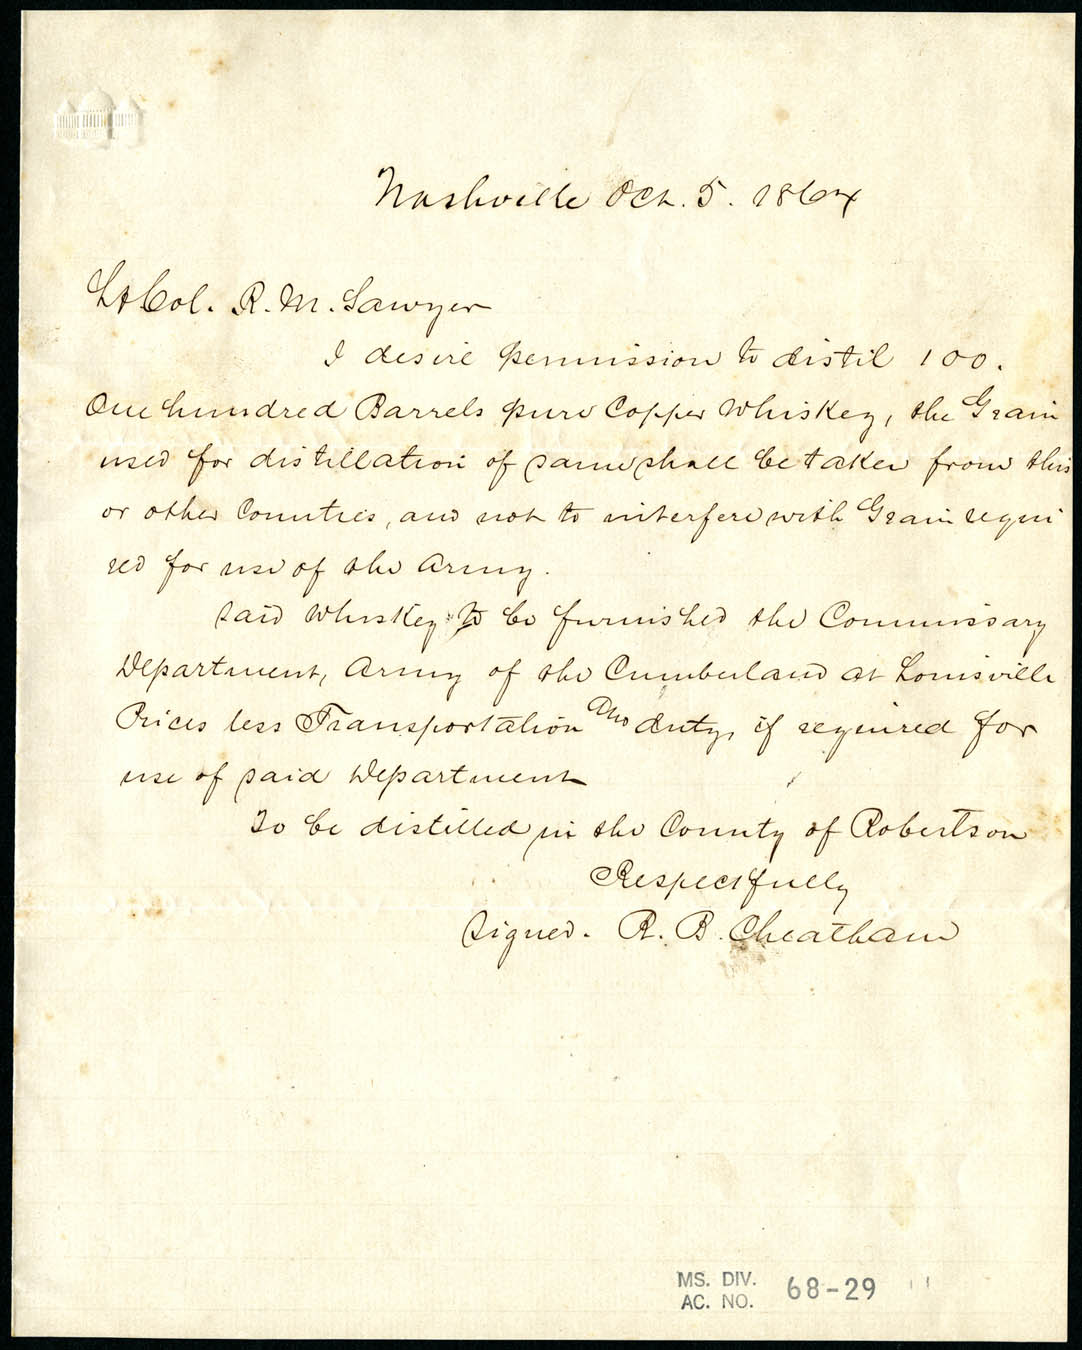 Nashville Oct. 5. 1864
Lt Col. R. M. Sawyer
I desire permission to distil 100.
One hundred Barrels pure Copper Whiskey, the Grain
used for distillation of same shall be taken from this
or other Counties, and not to interfere with Grain requi
red for use of the Army.
Said Whiskey to be furnished the Commissary
Department, Army of the Cumberland at Louisville
Prices less Transportation and duty, if required for
use of said Department
To be distilled in the County of Robertson
Respectfully
Signed. R. B. Cheatham
MS. DIV.
AC. NO. 68-29